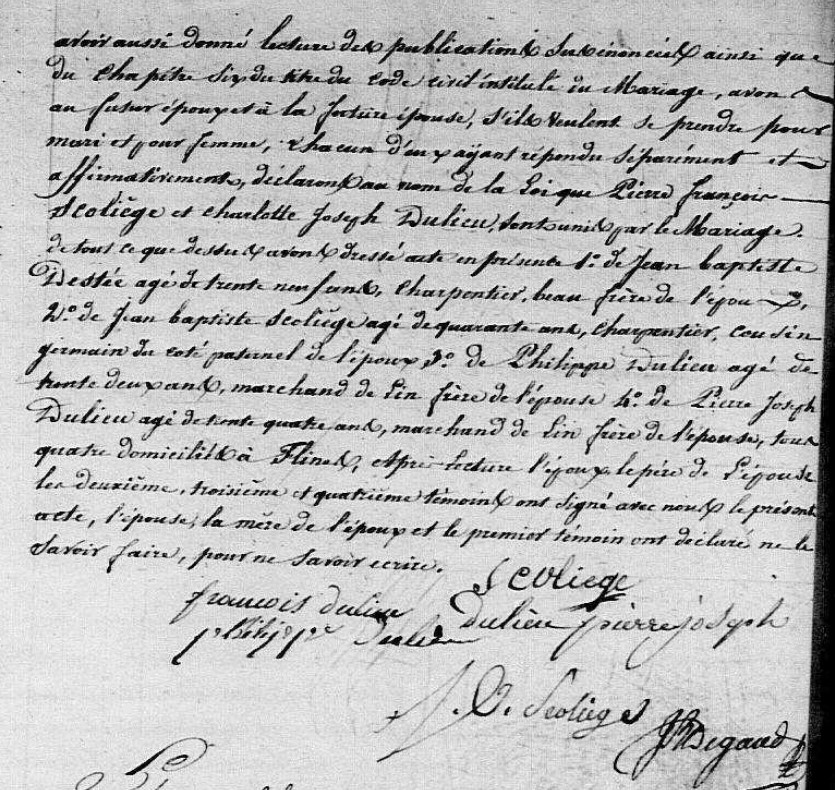 avoir aussi donné lecture des publications susénoncées ainsi que
du chapitre six du titre du code civil intitulé du Mariage, avons
au futur époux et à la future épouse, s'ils veulent se prendre pour
mari et pour femme, chacun d'eux ayant répondu séparément et
affirmativement, déclarons au nom de la Loi que Pierre françois
Scoliège et Charlotte Joseph Dulieu, sont unis par le Mariage.
de tout ce que dessus avons dressé acte en présence 1.º de Jean baptiste
Destée agé de trente neuf ans, Charpentier, beau frère de l'époux,
2.º de Jean baptiste Scoliège agé de quarante ans, Charpentier, cousin
germain du coté paternel de l'époux, 3.º de Philippe Dulieu agé de
trente deux ans, marchand de Lin frère de l'épouse 4.º de Pierre Joseph
Dulieu agé de trente quatre ans, marchand de Lin frère de l'épouse, tous
quatre domiciliés à Flines, et après Lecture l'époux, le père de l'épouse
les deuxième, troisième et quatrième témoins ont signé avec nous le présent
acte, l'épouse, la mère de l'époux et le premier témoin ont déclaré ne le
Savoir faire, pour ne Savoir ecrire.
Scoliege
francois dulieu
dulieu pierre joseph
philippe Dulieu
J. B. Scolieges